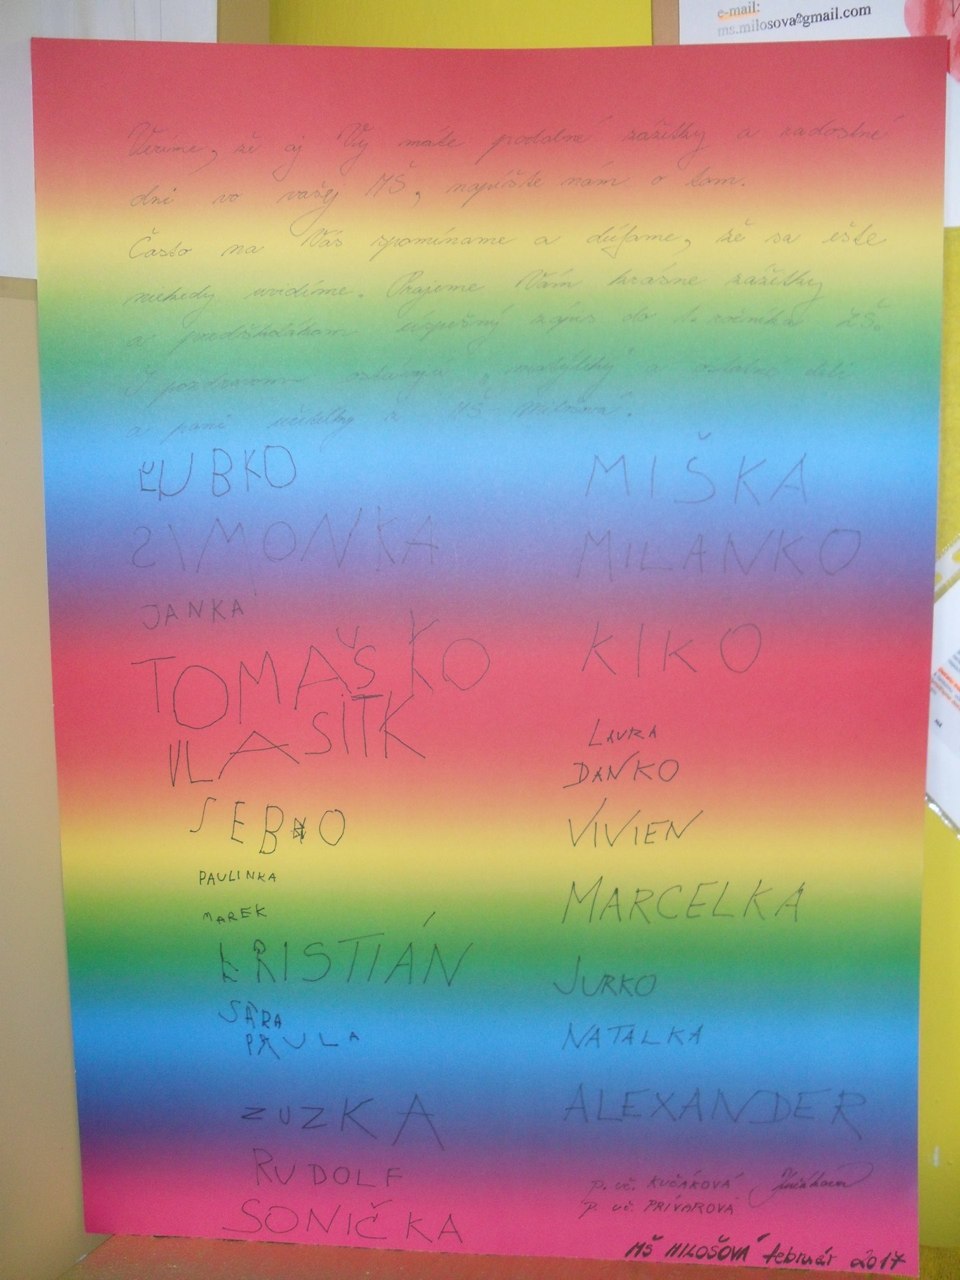 e-mail:
ms.milosova@gmail.com
Veríme, že aj Vy máte podobné zážitky a radostné
dni vo vašej MŠ, napíšte nám o tom.
Často na Vás spomíname a dúfame, že sa ešte
niekedy uvidíme. Prajeme Vám krásne zážitky
a predškolákom úspešný zápis do 1. ročníka ZŠ.
S pozdravom ostatné deti
a pani učiteľky z MŠ Milošová.
ĽUBKO
SIMONKA
JANKA
TOMAŠKO
VLASTIK
SEBO
PAULINKA
MAREK
KRISTIÁN
SÁRA
PAULA
ZUZKA
RUDOLF
SONIČKA
MIŠKA
MILANKO
KIKO
LAURA
DANKO
VIVIEN
MARCELKA
JURKO
NATALKA
ALEXANDER
p. uč. KUČÁKOVÁ
p. uč. PRÍVAROVÁ
MŠ MILOŠOVÁ február 2017